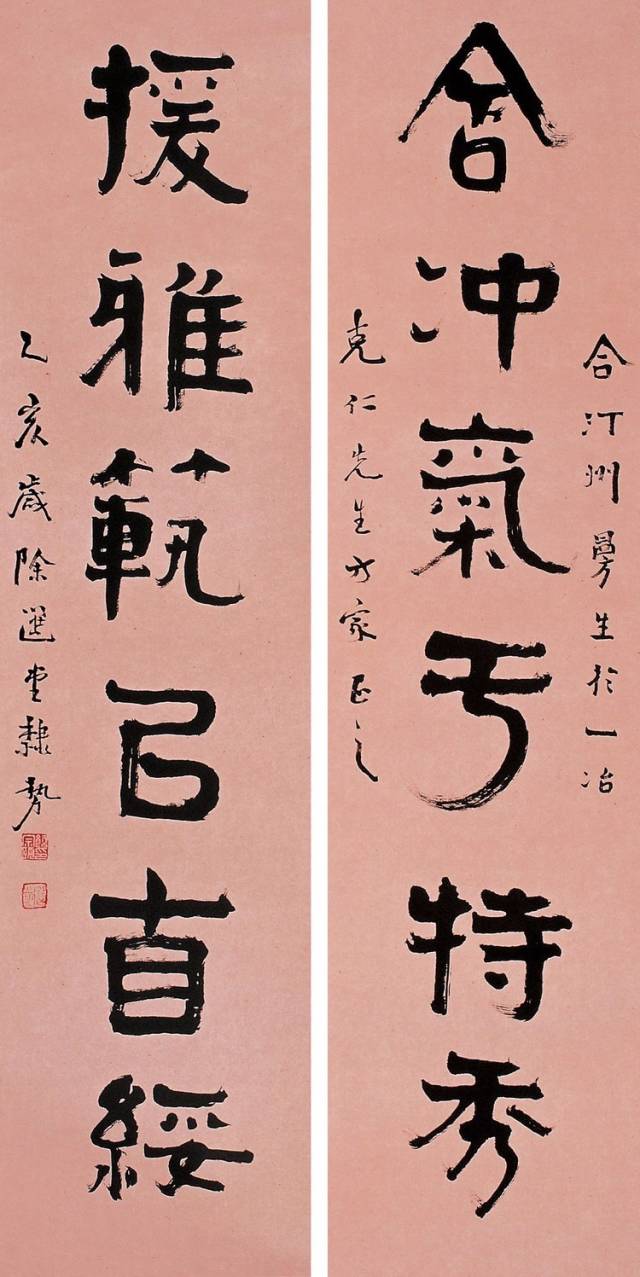 合汀州曼生於一冶
含冲氣亏特秀
克仁先生方家正之
援雅範㠯直綏
乙亥歲除選堂隸勢